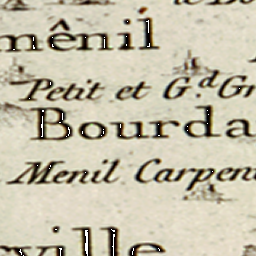 mênil
Petit et Gd Gr
Bourda
Menil Carpen
rville